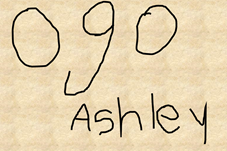 090
Ashley